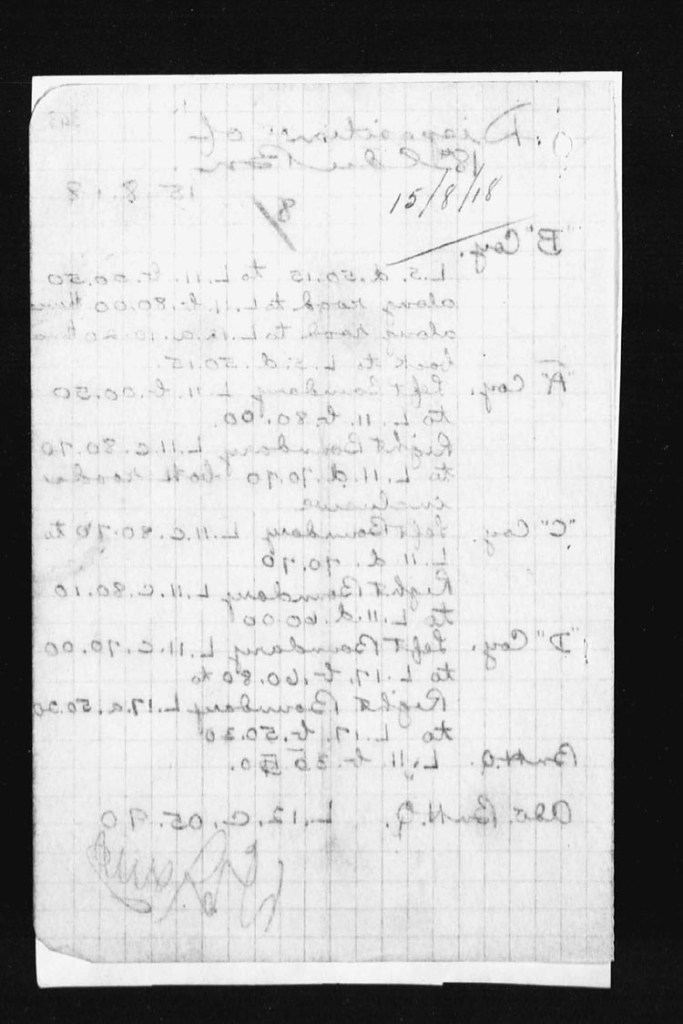 Disposition of
18th Bn
15.8.18
15/8/18
8
"B" Coy. L.5.d.50.15 to L.11.b.00.50
along road to L.11.b.80.00 thence
along road to L.12.a.10.20
back to L.5.d.50.15.
"A" Coy. Left Boundary L.11.b.00.50
to L.11.b.80.00.
Right Boundary L.11.c.80.70
to L.11.d.70.70 both roads
inclusive
"C" Coy. Left Boundary L.11.c.80.70 to
L.11.d.70.70
Right Boundary L.11.c.80.10
to L.11.d.60.00
"D" Coy. Left Boundary L.11.c.70.00
to L.17.b.60.80 to
Right Boundary L.17.a.50.30
to L.17.b.50.30
Bn H.Q. L.11.b.35.50.
Adv. Bn H.Q. L.12.c.05.70